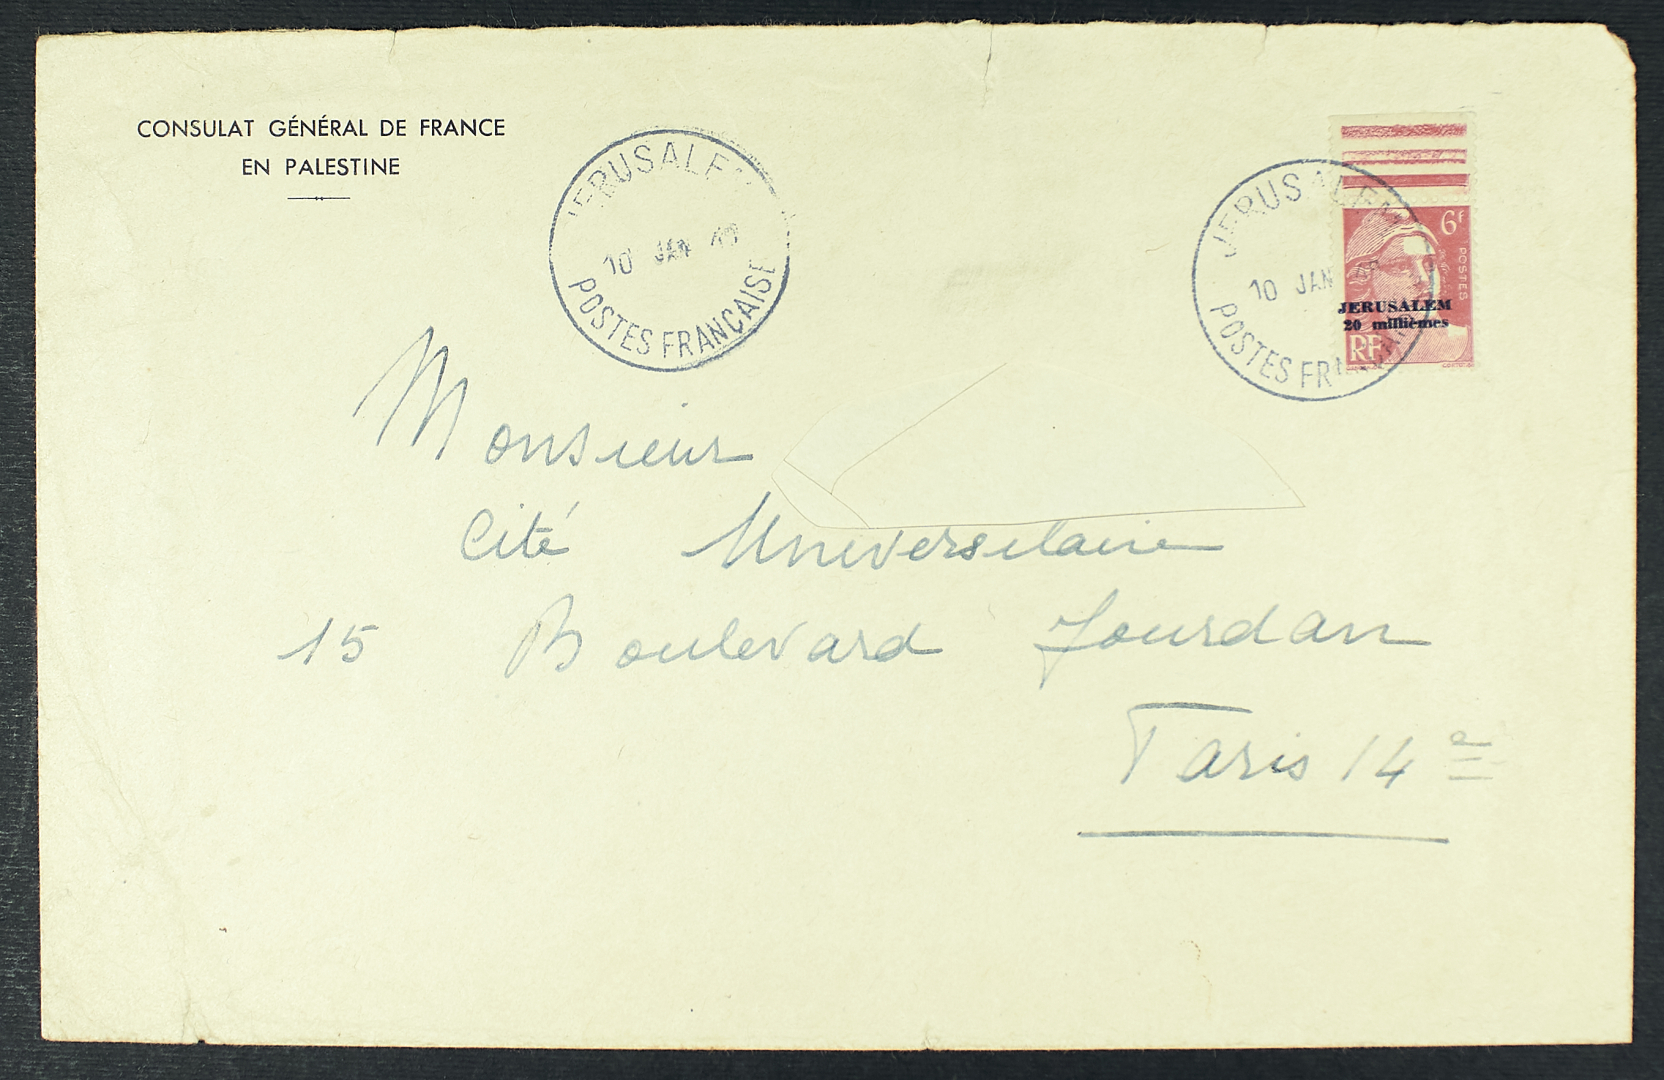 CONSULAT GÉNÉRAL DE FRANCE
EN PALESTINE
JERUSALEM
10 JAN
POSTES FRANÇAISE
JERUSALEM
10 JAN
POSTES FRANÇAISE
6F
POSTES
JERUSALEM
20 millièmes
RF
Monsieur
Cité Universitaire
15 Boulevard Jourdan
Paris 14e